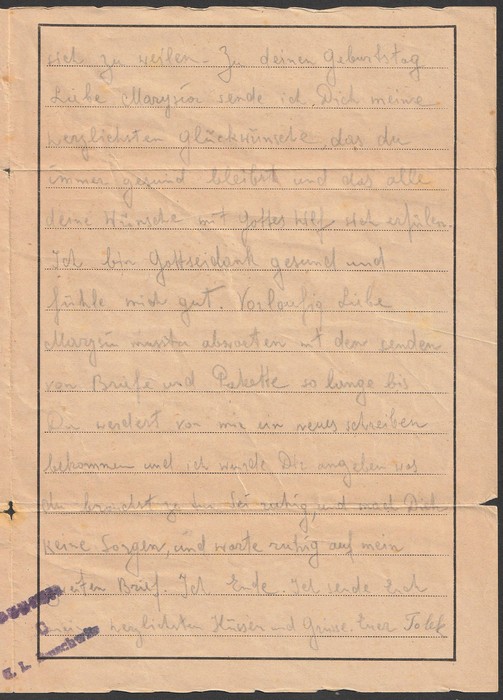 sich zu weilen. Zu deinen Geburtstag
Liebe Marysia sende ich Dich meine
herzlichsten Glückwünsche, das du
immer gesund bleibst und das alle
deine Wünsche mit Gottes Hilf sich erfülen.
Ich bin Gottseidank gesund und
fühle mich gut. Vorlaufig Liebe
Marysia musstu abwarten mit dem senden
von Briefe und Pakette so lange bis
Du werdest von mir ein neues schreiben
bekommen und ich wurde Dir angeben was
du brauchst zu tun. Sei ruhig, und mach Dich
keine Sorgen, und warte ruhig auf mein
Brief. Ich Ende. Ich sende Euch
herzlichsten Küssen und Grüsse. Euer Tolek
K. L. Auschwitz